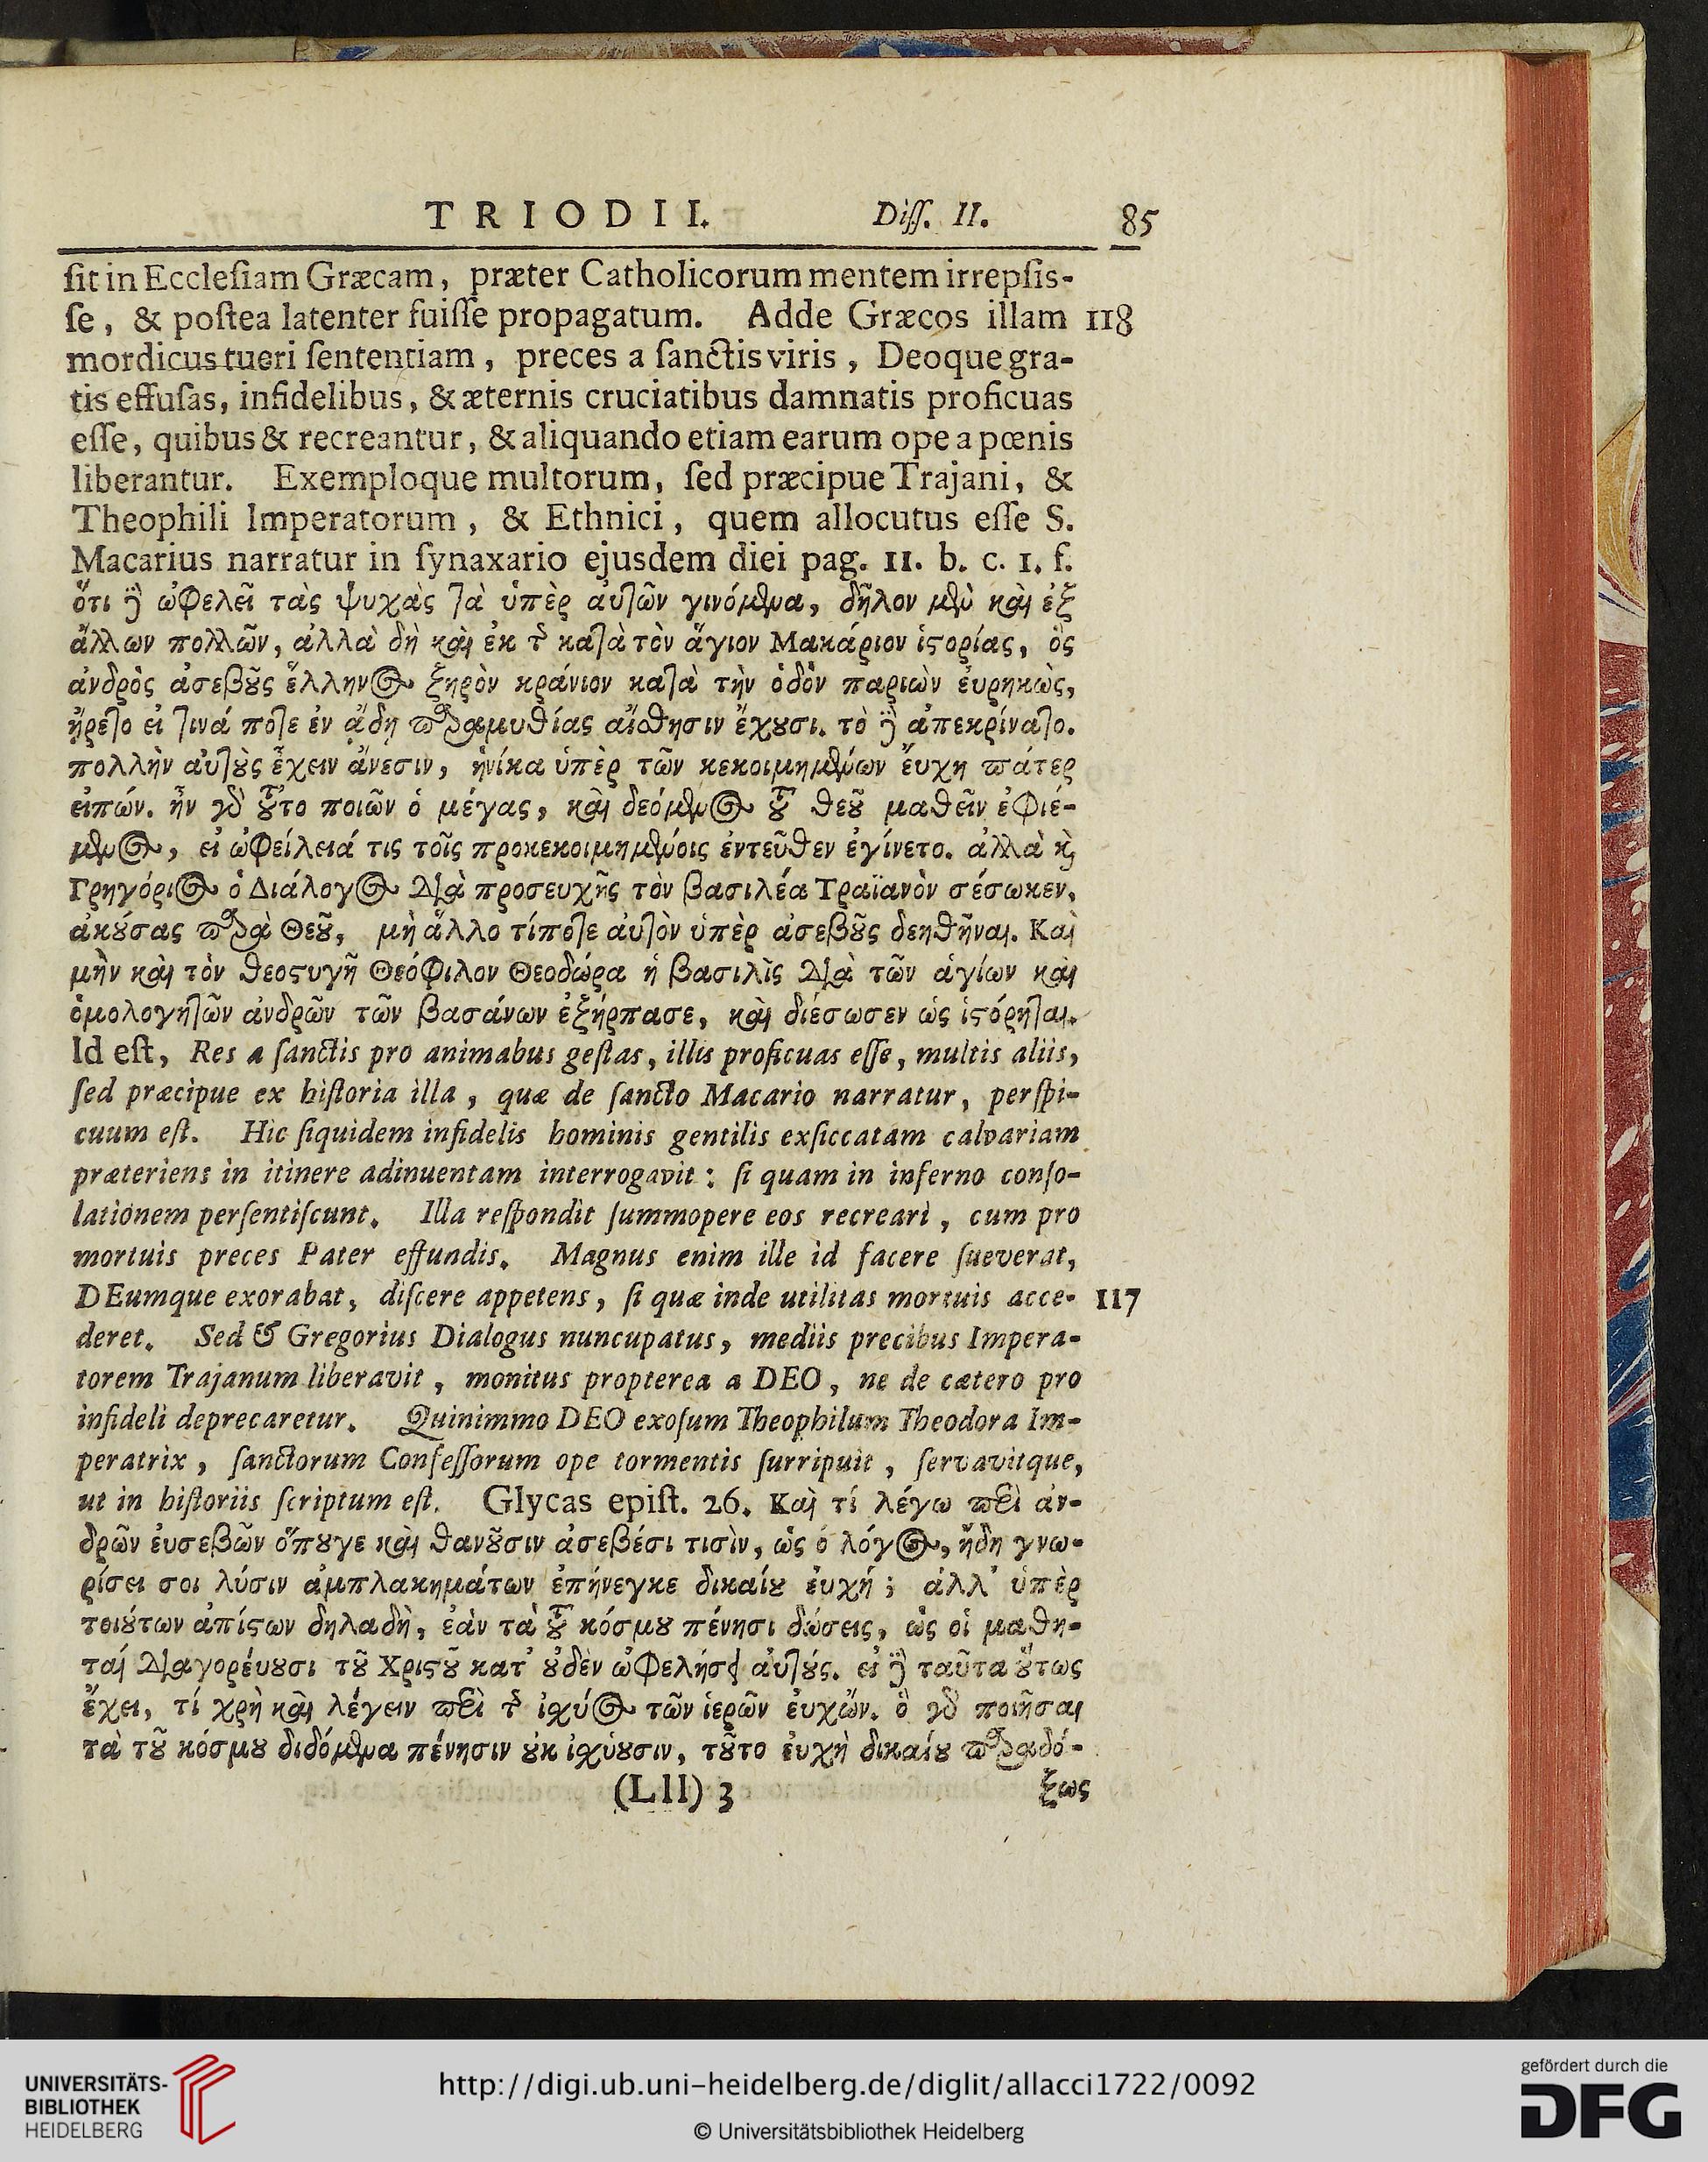 TRIODII. Diſſ. II. 85
ſit in Eccleſiam Græcam, præter Catholicorum mentem irrepſis-
ſe, & poſtea latenter fuiſſe propagatum. Adde Græcos illam 118
mordicus tueri ſententiam, preces a ſanctis viris, Deoque gra-
tis effuſas, infidelibus, & æternis cruciatibus damnatis proficuas
eſſe, quibus & recreantur, & aliquando etiam earum ope a pœnis
liberantur. Exemploque multorum, ſed præcipue Trajani, &
Theophili Imperatorum, & Ethnici, quem allocutus eſſe S.
Macarius narratur in ſynaxario ejusdem diei pag. 11. b. c. 1. f.
ὅτι ȣ̓͂ ὠφελεῖ τὰς ψυχὰς τὰ ὑπὲρ αὐτῶν γινόμενα, δῆλον μὲν καὶ ἐξ
ἄλλων πολλῶν, ἀλλὰ δὴ καὶ ἐκ τῆς κατὰ τὸν ἅγιον Μακάριον ἱϛορίας, ὃς
ἀνδρὸς ἀσεβȣ͂ς ἕλληνος ξηρὸν κράνιον κατὰ τὴν ὁδὸν παριὼν ἑυρηκὼς,
ἠρέτο εἰ τινά ποτε ἐν ᾅδη παραμυθίας αἴσθησιν ἔχȣσι. τὸ δὲ ἀπεκρίνατο.
πολλὴν αὐτȣ̀ς ἔχειν ἄνεσιν, ἡνίκα ὑπὲρ τῶν κεκοιμημένων ἔυχη πάτερ
εἰπών. ἦν γὰρ τȣ͂το ποιῶν ὁ μέγας, καὶ δεόμενος τȣ͂ θεȣ͂ μαθεῖν ἐφιέ-
μενος, εἰ ὠφείλειά τις τοῖς προκεκοιμημένοις ἐντεῦθεν ἐγίνετο. ἀλλὰ καὶ
Γρηγόριος ὁ Διάλογος διὰ προσευχῆς τὸν βασιλέα Τραϊανὸν σέσωκεν,
ἀκȣ́σας παρὰ Θεȣ͂, μὴ ἄλλο τίποτε αὐτὸν ὑπὲρ ἀσεβȣ͂ς δεηθῆναι. Καὶ
μὴν καὶ τὸν θεοϛυγῆ Θεόφιλον Θεοδώρα ἡ βασιλὶς διὰ τῶν ἁγίων καὶ
ὁμολογητῶν ἀνδρῶν τῶν βασάνων ἐξήρπασε, καὶ διέσωσεν ὡς ἱϛόρηται.
Id eſt, Res a ſanctis pro animabus geſtas, illis proficuas eſſe, multis aliis,
ſed præcipue ex hiſtoria illa, quæ de ſancto Macario narratur, perſpi-
cuum eſt. Hic ſiquidem infidelis hominis gentilis exſiccatam calvariam
præteriens in itinere adinuentam interrogavit: ſi quam in inferno conſo-
lationem perſentiſcunt. Illa reſpondit ſummopere eos recreari, cum pro
mortuis preces Pater effundis. Magnus enim ille id facere ſueverat,
DEumque exorabat, diſcere appetens, ſi quæ inde utilitas mortuis acce- 117
deret. Sed & Gregorius Dialogus nuncupatus, mediis precibus Impera-
torem Trajanum liberavit, monitus propterea a DEO, ne de cætero pro
infideli deprecaretur. Quinimmo DEO exoſum Theophilum Theodora Im-
peratrix, ſanctorum Confeſſorum ope tormentis ſurripuit, ſervavitque,
ut in hiſtoriis ſcriptum eſt. Glycas epiſt. 26. Καὶ τί λέγω περὶ ἀν-
δρῶν ἐυσεβῶν ὅπȣγε καὶ θανȣ͂σιν ἀσεβέσι τισὶν, ὡς ὁ λόγος, ἤδη γνω-
ρίσει σοι λύσιν ἀμπλακημάτων ἐπήνεγκε δικαίȣ ἐυχή; ἀλλ' ὑπὲρ
τοιȣ́των ἀπίϛων δηλαδὴ, ἐὰν τὰ τȣ͂ κόσμȣ πένησι δώσεις, ὡς οἱ μαθη-
ταὶ διαγορέυȣσι τȣ͂ Χριϛȣ͂ κατ' ȣ̓δὲν ὠφελήσεις αὐτȣ́ς. εἰ δὲ ταῦτα ȣ̔́τως
ἔχει, τί χρὴ καὶ λέγειν περὶ τῆς ἰσχύος τῶν ἱερῶν ἐυχῶν. ὃ γὰρ ποιῆσαι
τὰ τȣ͂ κόσμȣ διδόμενα πένησιν ȣ̓κ ἰσχύȣσιν, τȣ͂το ἐυχὴ δικαίȣ παραδό-
(Lll) 3 ξως
UNIVERSITÄTS-
BIBLIOTHEK
HEIDELBERG
http://digi.ub.uni-heidelberg.de/diglit/allacci1722/0092
© Universitätsbibliothek Heidelberg
gefördert durch die
DFG